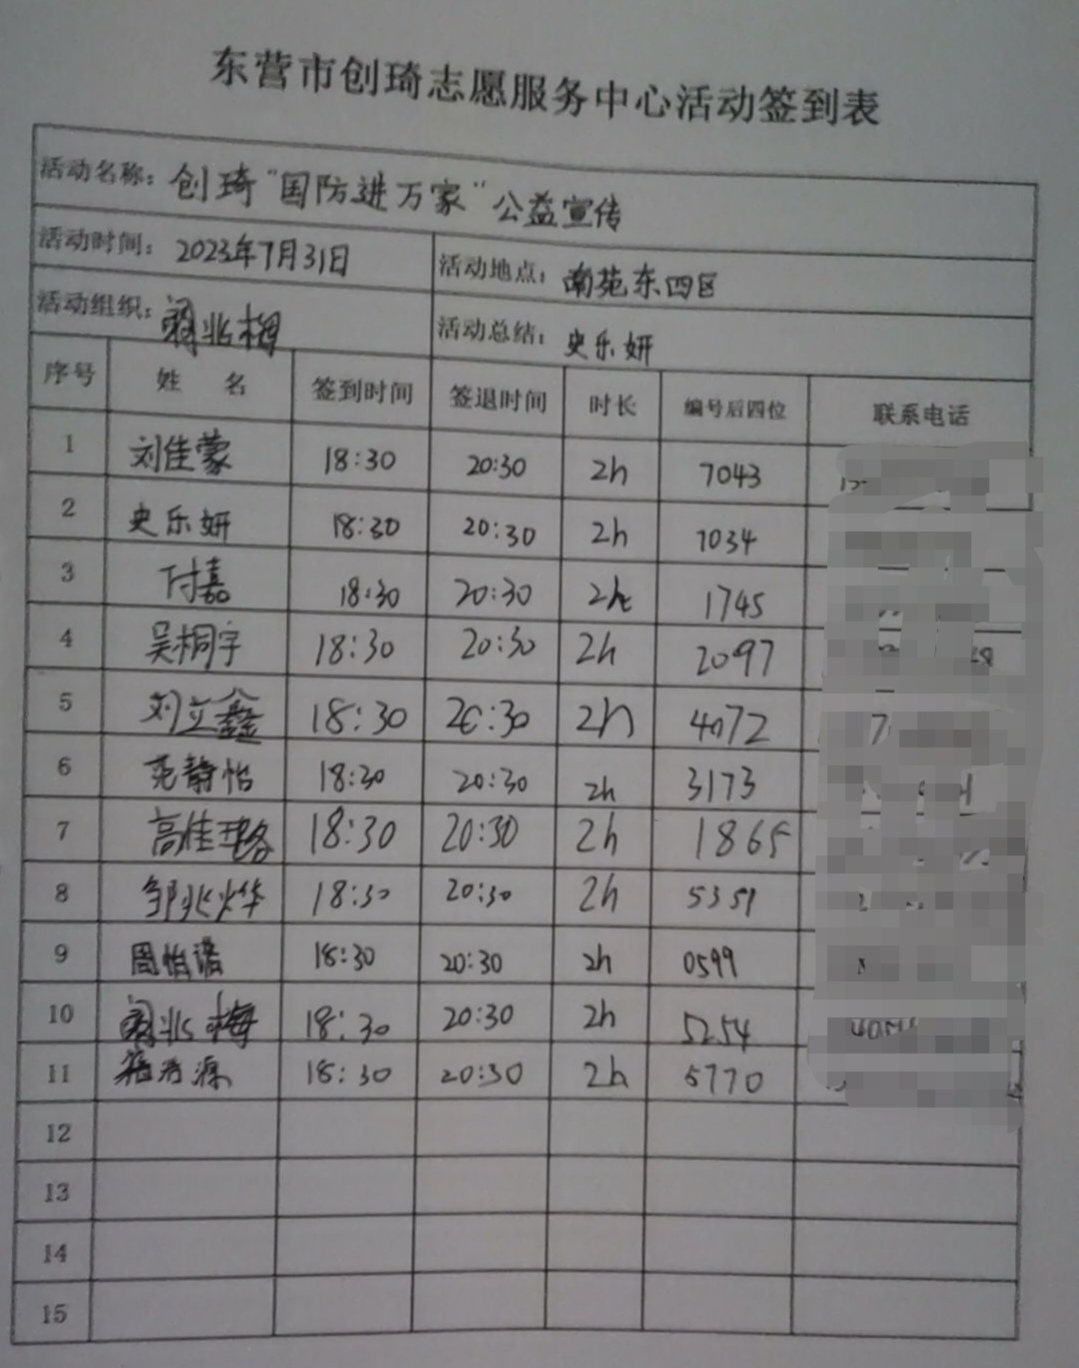 东营市创琦志愿服务中心活动签到表
活动名称：创琦“国防进万家”公益宣传
活动时间：2023年7月31日 活动地点：南苑东四区
活动组织：兆梅 活动总结：史乐妍
序号 姓名 签到时间 签退时间 时长 编号后四位 联系电话
1 刘佳蒙 18:30 20:30 2h 7043
2 史乐妍 18:30 20:30 2h 7034
3 付嘉 18:30 20:30 2h 1745
4 吴桐宇 18:30 20:30 2h 2097
5 刘立鑫 18:30 20:30 2h 4072
6 范静怡 18:30 20:30 2h 3173
7 高佳璐 18:30 20:30 2h 1865
8 邹兆烨 18:30 20:30 2h 5351
9 周怡诺 18:30 20:30 2h 0599
10 兆梅 18:30 20:30 2h 5254
11 18:30 20:30 2h 5770
12
13
14
15